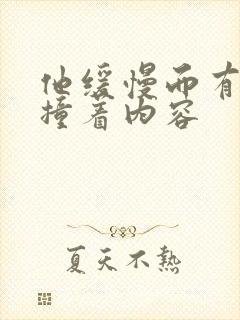 他缓慢而有
撞着内容
夏天不热